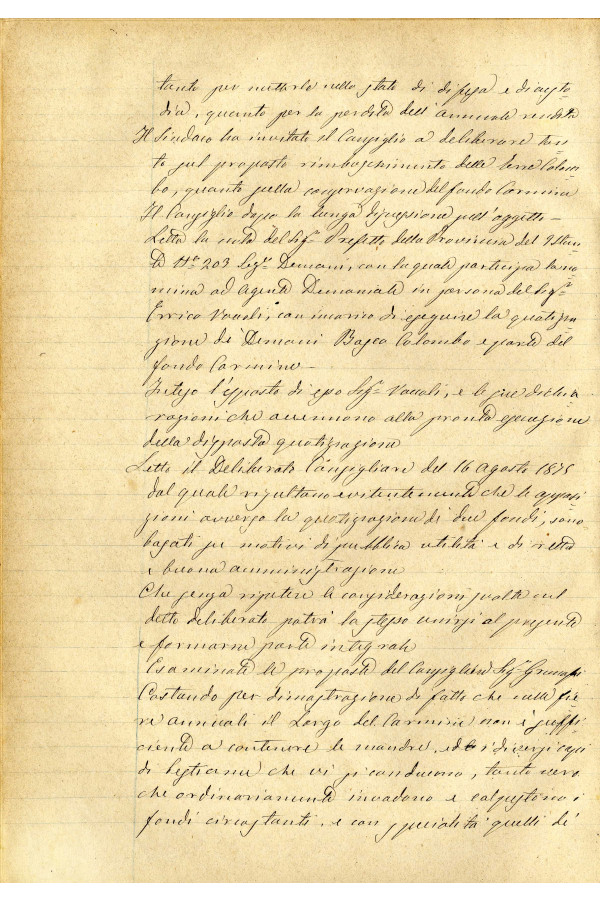 tanto per metterlo nello stato di difesa e di custo-
dia, quanto per la perdita dell'annuale rendita
Il Sindaco ha invitato il Consiglio a deliberare tan-
to sul proposto rimboschimento delle terre Colom-
bo, quanto sulla conservazione del fondo Carmine
Il Consiglio dopo la lunga discussione sull'oggetto –
Letta la nota del Sigr Prefetto della Provincia del
N.o 203 Segr. Demani, con la quale partecipa la no-
mina ad Agente Demaniale in persona del Sigr
Errico Vaccoli, con incarico di eseguire la quotizza
zione dei Demani Bosco Colombo e parte del
fondo Carmine –
Inteso l'esposto di esso Sigr Vaccoli, e le sue dichia-
razioni che accennono alla pronta esecuzione
della disposta quotizzazione
Letto il Deliberato Consigliare del 16 Agosto 1875
dal quale risultano evidentemente che le opposi
zioni avverso la quotizzazione di due fondi, sono
basati su motivi di pubblica utilità e di retta
e buona amministrazione
Che senza ripetere le considerazioni svolte nel
detto deliberato potrà lo stesso unirsi al presente
e formarne parte integrale
Esaminate le proposte del Consigliere Sigr
Costando per dimostrazione di fatto che nelle fie
re annuali il Largo del Carmine non è suffi
ciente a contenere le mandre, ed i diversi capi
di bestiame che vi si conducono, tanto vero
che ordinariamente invadono e calpestono i
fondi circostanti, e con specialità quelli di